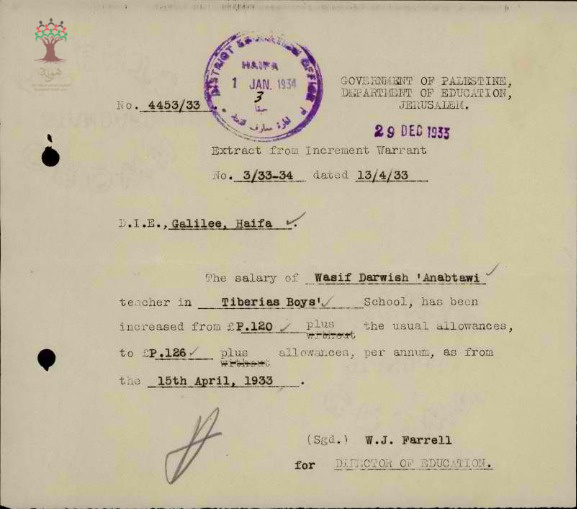 DISTRICT EDUCATION OFFICE
HAIFA
1 JAN. 1934
3
حيفا
GOVERNMENT OF PALESTINE,
DEPARTMENT OF EDUCATION,
JERUSALEM.
No. 4453/33.
29 DEC 1933
Extract from Increment Warrant
No. 3/33-34 dated 13/4/33
D.I.E., Galilee, Haifa.
The salary of Wasif Darwish 'Anabtawi
teacher in Tiberias Boys' School, has been
increased from £P.120 plus without the usual allowances,
to £P.126 plus without allowances, per annum, as from
the 15th April, 1933.
(Sgd.) W.J. Farrell
for DIRECTOR OF EDUCATION.